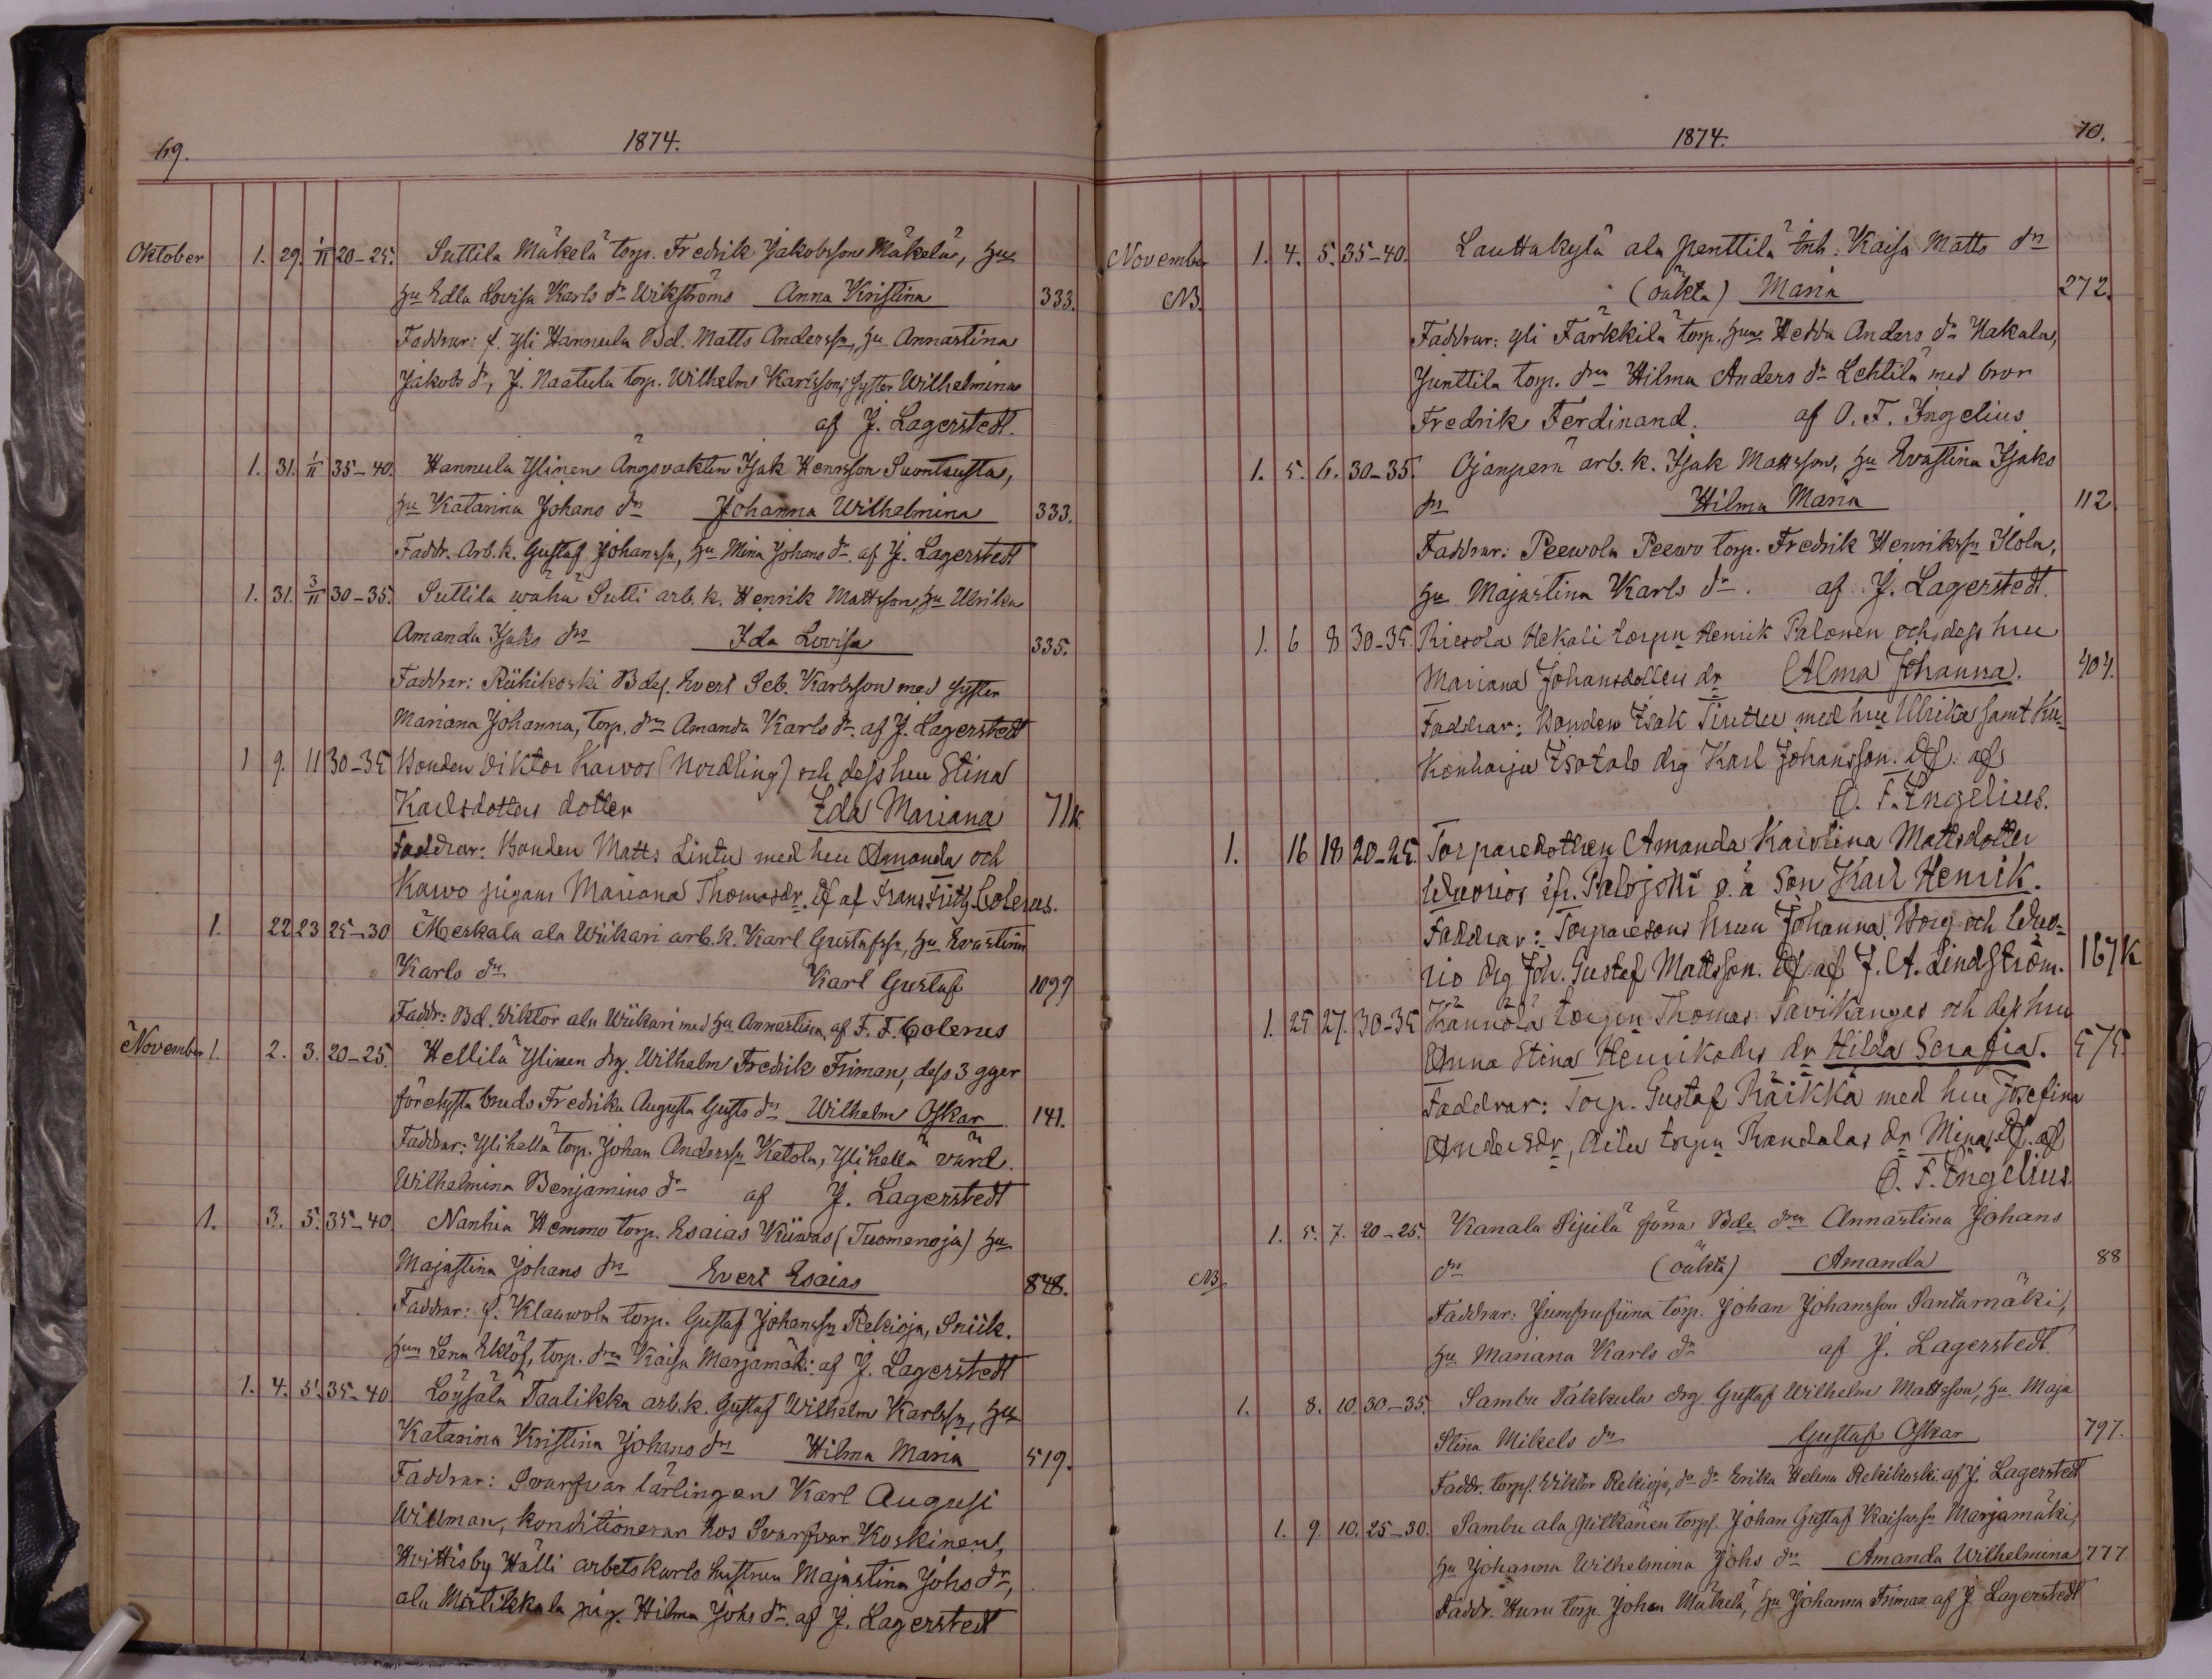 69. 1874.
Oktober 1. 29. 1/11 20–25. Suttila Mäkelä torp. Fredrik Jakobsson Mäkelä, hu
hu Edla Lovisa Karls dr Wikströms Anna Kristina 333.
Faddrar: f. Yli Hannula Bd. Matts Anderssn, hu Annastina
Jakobs dr, J. Naatula torp. Wilhelm Karlssons syster Wilhelmina
af J. Lagerstedt.
1. 31. 1/11 35–40. Hannula Ylinen Ängsvakten Isak Henrsson Suontausta,
hu Katarina Johans drs Johanna Wilhelmina 333.
Faddr. Arb. k. Gustaf Johanssn, hu Mina Johans dr. af J. Lagerstedt
1. 31. 3/11 30–35. Suttila wähä Sutti arb. k. Henrik Mattsson, hu Ulrika
Amanda Isaks drs Ida Lovisa 335.
Faddrar: Riihikoski Bdes. Evert Seb. Karlsson med syster
Mariana Johanna, torp. drn Amanda Karls dr. af J. Lagerstedt
1 9. 11 30–35 Bonden Viktor Karvos (Nordling) och dess hu Stina
Karlsdotters dotter Ida Mariana 71k
Faddrar: Bonden Matts Lintu med hu Amanda och
Karvo pigan Mariana Thomasdr. Df af Frans Fritz. Colerus.
1. 22 23 25–30 Meskala ala Wiikari arb. k. Karl Gustafssn, hu Evastina
Karls drs Karl Gustaf 1099
Faddr: Bd. Viktor ala Wiikari med hu Annastina, af F. F. Colerus
November 1. 2. 3. 20–25. Hellilä Ylinen drg. Wilhelm Fredrik Friman, dess 3 gger
förelysta bruds Fredrika Augusta Gusts drs Wilhelm Oskar 141.
Faddrar: Ylihellä torp. Johan Anderssn Ketola, Ylihellä värd.
Wilhelmina Benjamins dr af J. Lagerstedt
1. 3. 5. 35–40. Nanhia Hemmo torp. Esaias Kiiwas (Tuomenoja) hu
Majastina Johans drs Evert Esaias 848.
Faddrar: f. Klauwola torp. Gustaf Johanssn Rekioja, Snick.
hun Lena Eklöf, torp. drn Kaisa Marjamäki af J. Lagerstedt
1. 4. 5. 35–40 Loysälä Taalikka arb. k. Gustaf Wilhelm Karlssn, hu
Katarina Kristina Johans drs Hilma Maria 519.
Faddrar: Svarfvar lärlingen Karl August
Willman, konditionerar hos Svarfvar Koskinen,
Hvittisby Hälli arbetskarls hustrun Majastina Johs dr,
ala Mätikkala pig. Hilma Johs dr. af J. Lagerstedt
1874. 70.
November 1. 4. 5. 35–40. Lauttakylä ala Penttilä Inh. Kaisa Matts drs
NB. (oäkta) Maria 272.
Faddrar: Yli Färkkilä torp. hun Hedda Anders dr Hakala,
Junttila torp. drn Hilma Anders dr Lehtilä med bror
Fredrik Ferdinand. af O. F. Ingelius
1. 5. 6. 30–35. Ojanperä arb. k. Isak Mattsson, hu Evastina Isaks
drs Hilma Maria 112
Faddrar: Peewola Peewo torp. Fredrik Henrikssn Ilola,
hu Majastina Karls dr. af J. Lagerstedt.
1. 6 8 30–35. Riesola Hekali torpn Henrik Palonen och dess hu
Mariana Johansdotters dr Alma Johanna. 404.
Faddrar: Bonden Isak Tiuttu med hu Ulrika samt Ku-
konharja Isotalo drg Karl Johansson. Df. af
O. F. Ingelius.
1. 16 18 20–25. Torparedottren Amanda Karolina Mattsdotter
Wuorios ifr. Palojoki o. ä Son Karl Henrik.
Faddrar: Torparesons hun Johanna Borg och Wuo-
rio drg Joh. Gustaf Mattsson. Df af J. A. Lindström. 167K
1. 25 27. 30–35 Kännölä torpn Thomas Savikangas och dess hu
Anna Stina Henriksdrs dr Hilda Serafia. 575.
Faddrar: Torp. Gustaf Räikkä med hu Josefina
Andersdr, Aitu torpn Randalas dr Mina. Df. af
O. F. Ingelius.
1. 5. 7. 20–25. Kanala Pijrilä förra Bde drn Annastina Johans
NB. drs (oäkta) Amanda 88
Faddrar: Jumfrufiina torp. Johan Johansson Santamäki,
hu Mariana Karls dr af J. Lagerstedt
1. 8. 10. 30–35. Sambu Takkula drg. Gustaf Wilhelm Mattsson, hu Maja
Stina Mikels drs Gustaf Oskar 797.
Faddr. torps. Viktor Rekioja, dr dr Erika Helena Rekikoski af J. Lagerstedt
1. 9. 10. 25–30. Sambu ala Pitkänen torps. Johan Gustaf Kaisassn Marjamäki,
hu Johanna Wilhelmina Johs drs Amanda Wilhelmina 777
Faddr. Huru torp. Johan Mäkelä, hu Johanna Friman af J. Lagerstedt